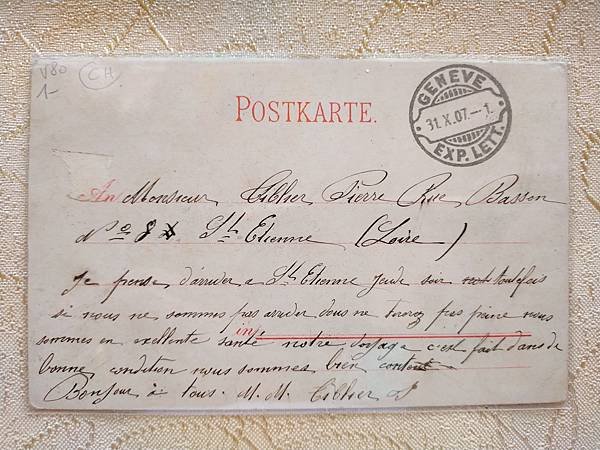 V80
1-
CH
POSTKARTE.
GENEVE
31.X.07.—1.
EXP. LETT.
An Monsieur Cibher Pierre Rue Basson
No 8 St Etienne (Loire)
Je pense d'arriver a St Etienne Jeude soir toutefois
si nous ne sommes pas arriver vous ne pas peine nous
in
sommes en exellente santé notre voyage c'est fait dans de
bonne condition nous sommes bien content
Bonjour à tous. M. M.